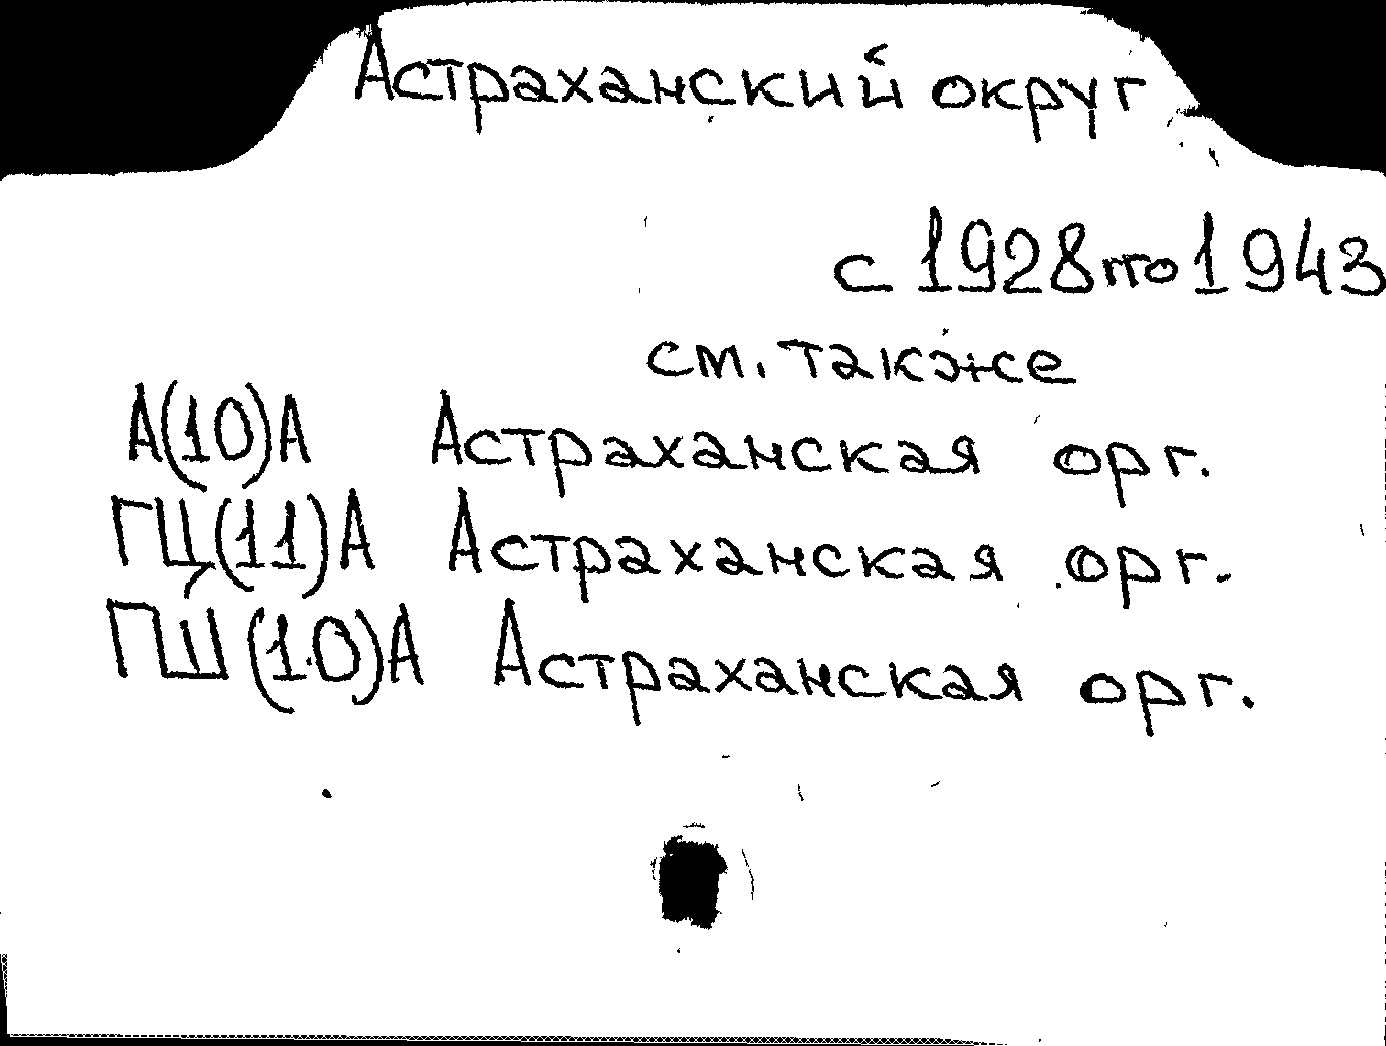 Астраханский округ
с 1928 по 1943
см. также
А(10)А Астраханская орг.
ГЦ(11)А Астраханская орг.
ГШ(10)А Астраханская орг.